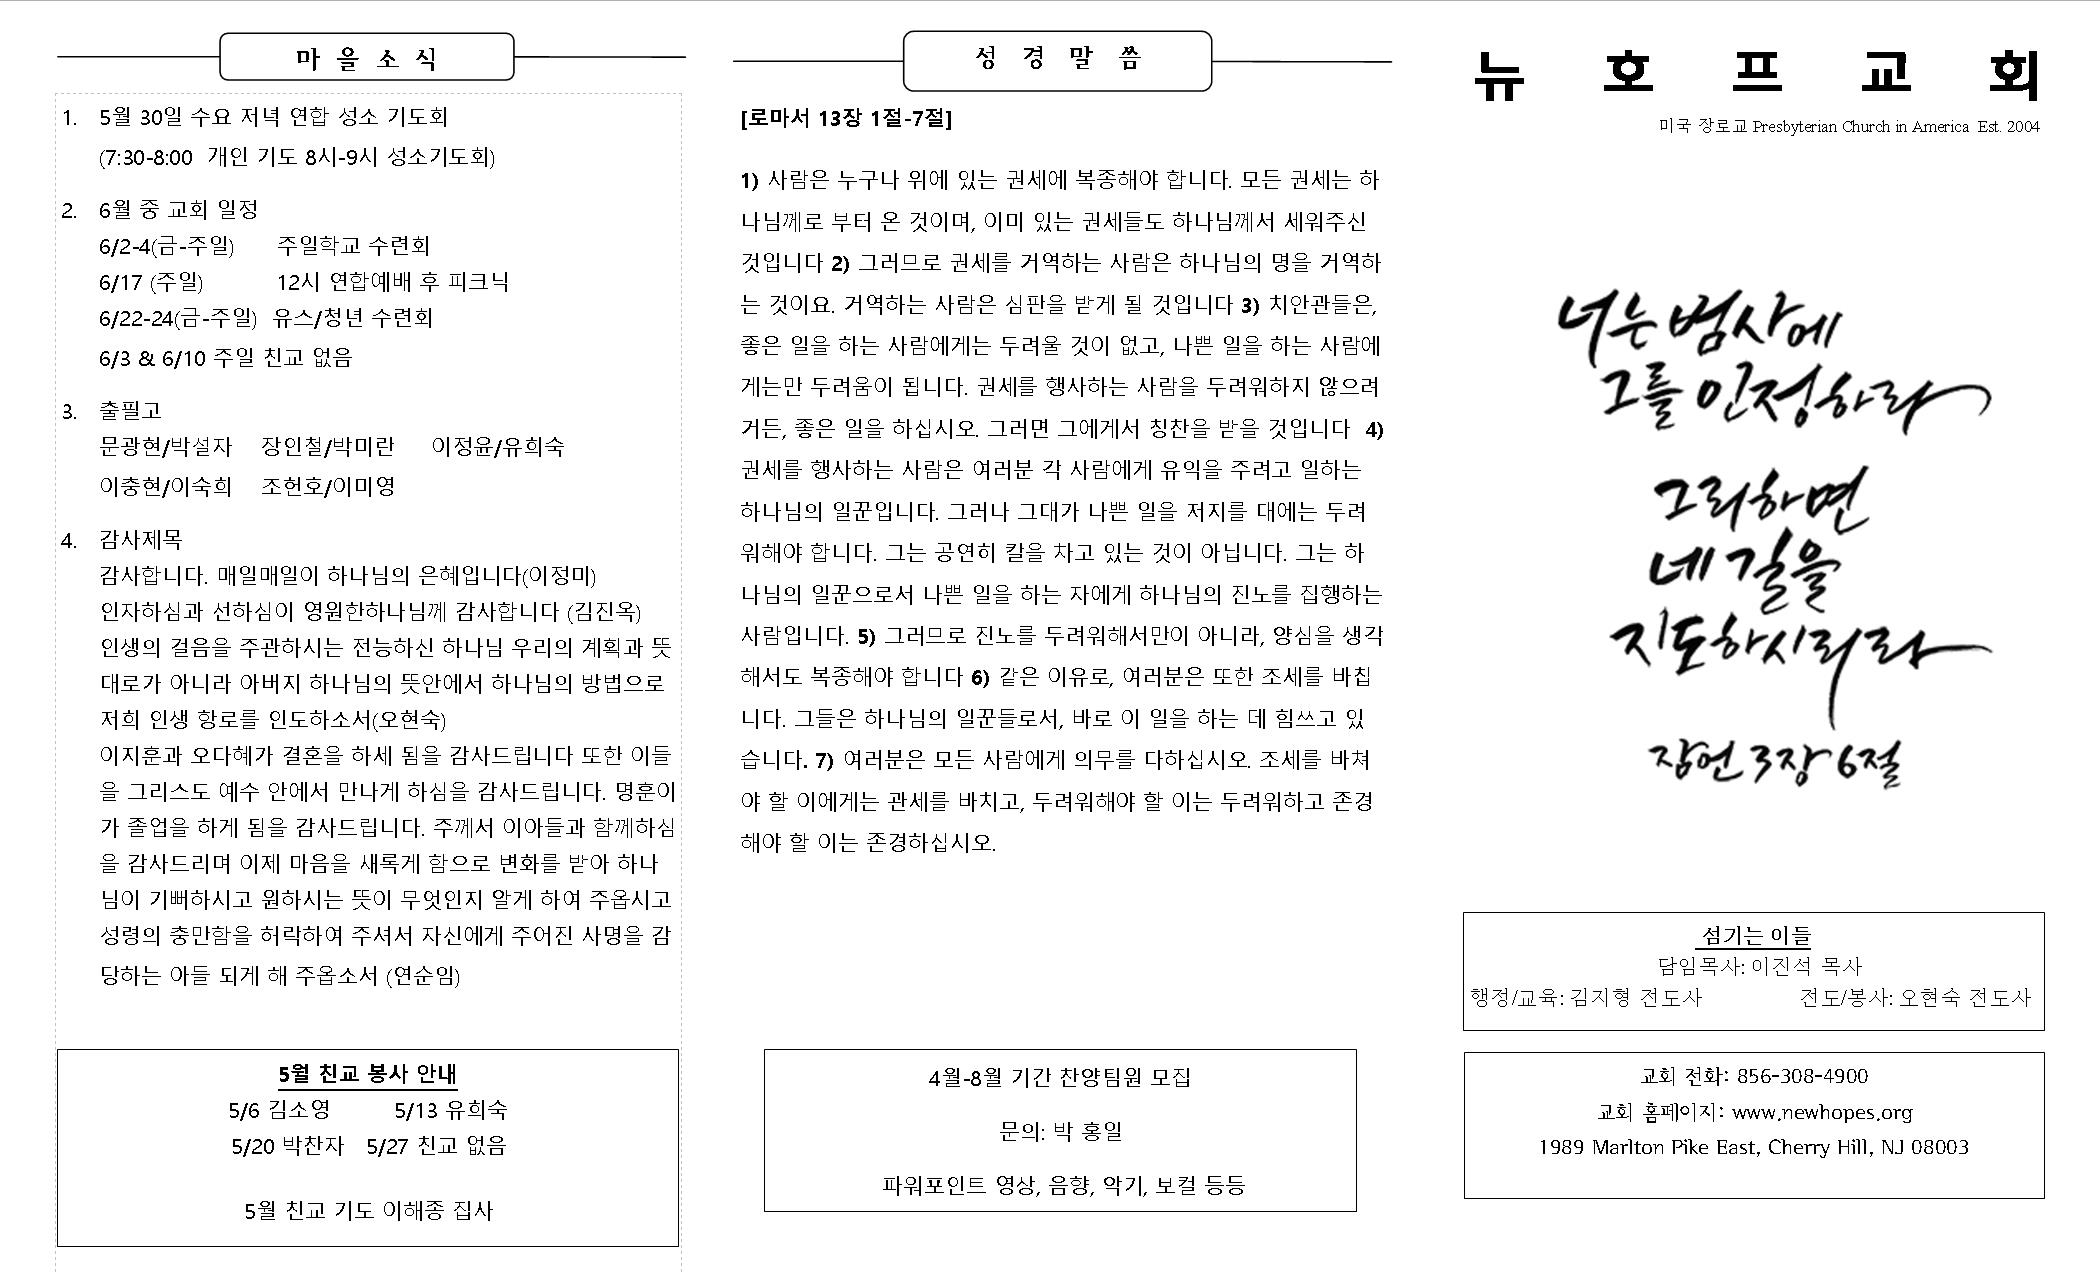 마 을 소 식
1. 5월 30일 수요 저녁 연합 성소 기도회
(7:30-8:00 개인 기도 8시-9시 성소기도회)
2. 6월 중 교회 일정
6/2-4(금-주일) 주일학교 수련회
6/17 (주일) 12시 연합예배 후 피크닉
6/22-24(금-주일) 유스/청년 수련회
6/3 & 6/10 주일 친교 없음
3. 출필고
문광현/박설자 장인철/박미란 이정윤/유희숙
이충현/이숙희 조헌호/이미영
4. 감사제목
감사합니다. 매일매일이 하나님의 은혜입니다(이정미)
인자하심과 선하심이 영원한하나님께 감사합니다 (김진옥)
인생의 걸음을 주관하시는 전능하신 하나님 우리의 계획과 뜻
대로가 아니라 아버지 하나님의 뜻안에서 하나님의 방법으로
저희 인생 항로를 인도하소서(오현숙)
이지훈과 오다혜가 결혼을 하세 됨을 감사드립니다 또한 이들
을 그리스도 예수 안에서 만나게 하심을 감사드립니다. 명훈이
가 졸업을 하게 됨을 감사드립니다. 주께서 이아들과 함께하심
을 감사드리며 이제 마음을 새록게 함으로 변화를 받아 하나
님이 기뻐하시고 원하시는 뜻이 무엇인지 알게 하여 주옵시고
성령의 충만함을 허락하여 주셔서 자신에게 주어진 사명을 감
당하는 아들 되게 해 주옵소서 (연순임)
5월 친교 봉사 안내
5/6 김소영 5/13 유희숙
5/20 박찬자 5/27 친교 없음
5월 친교 기도 이해종 집사
성 경 말 씀
[로마서 13장 1절-7절]
1) 사람은 누구나 위에 있는 권세에 복종해야 합니다. 모든 권세는 하
나님께로 부터 온 것이며, 이미 있는 권세들도 하나님께서 세워주신
것입니다 2) 그러므로 권세를 거역하는 사람은 하나님의 명을 거역하
는 것이요. 거역하는 사람은 심판을 받게 될 것입니다 3) 치안관들은,
좋은 일을 하는 사람에게는 두려울 것이 없고, 나쁜 일을 하는 사람에
게는만 두려움이 됩니다. 권세를 행사하는 사람을 두려워하지 않으려
거든, 좋은 일을 하십시오. 그러면 그에게서 칭찬을 받을 것입니다 4)
권세를 행사하는 사람은 여러분 각 사람에게 유익을 주려고 일하는
하나님의 일꾼입니다. 그러나 그대가 나쁜 일을 저지를 대에는 두려
워해야 합니다. 그는 공연히 칼을 차고 있는 것이 아닙니다. 그는 하
나님의 일꾼으로서 나쁜 일을 하는 자에게 하나님의 진노를 집행하는
사람입니다. 5) 그러므로 진노를 두려워해서만이 아니라, 양심을 생각
해서도 복종해야 합니다 6) 같은 이유로, 여러분은 또한 조세를 바칩
니다. 그들은 하나님의 일꾼들로서, 바로 이 일을 하는 데 힘쓰고 있
습니다. 7) 여러분은 모든 사람에게 의무를 다하십시오. 조세를 바쳐
야 할 이에게는 관세를 바치고, 두려워해야 할 이는 두려워하고 존경
해야 할 이는 존경하십시오.
4월-8월 기간 찬양팀원 모집
문의: 박 홍일
파워포인트 영상, 음향, 악기, 보컬 등등
뉴 호 프 교 회
미국 장로교 Presbyterian Church in America Est. 2004
너는 범사에
그를 인정하라
그리하면
네 길을
지도하시리라
잠언 3장 6절
섬기는 이들
담임목사: 이진석 목사
행정/교육: 김지형 전도사 전도/봉사: 오현숙 전도사
교회 전화: 856-308-4900
교회 홈페이지: www.newhopes.org
1989 Marlton Pike East, Cherry Hill, NJ 08003